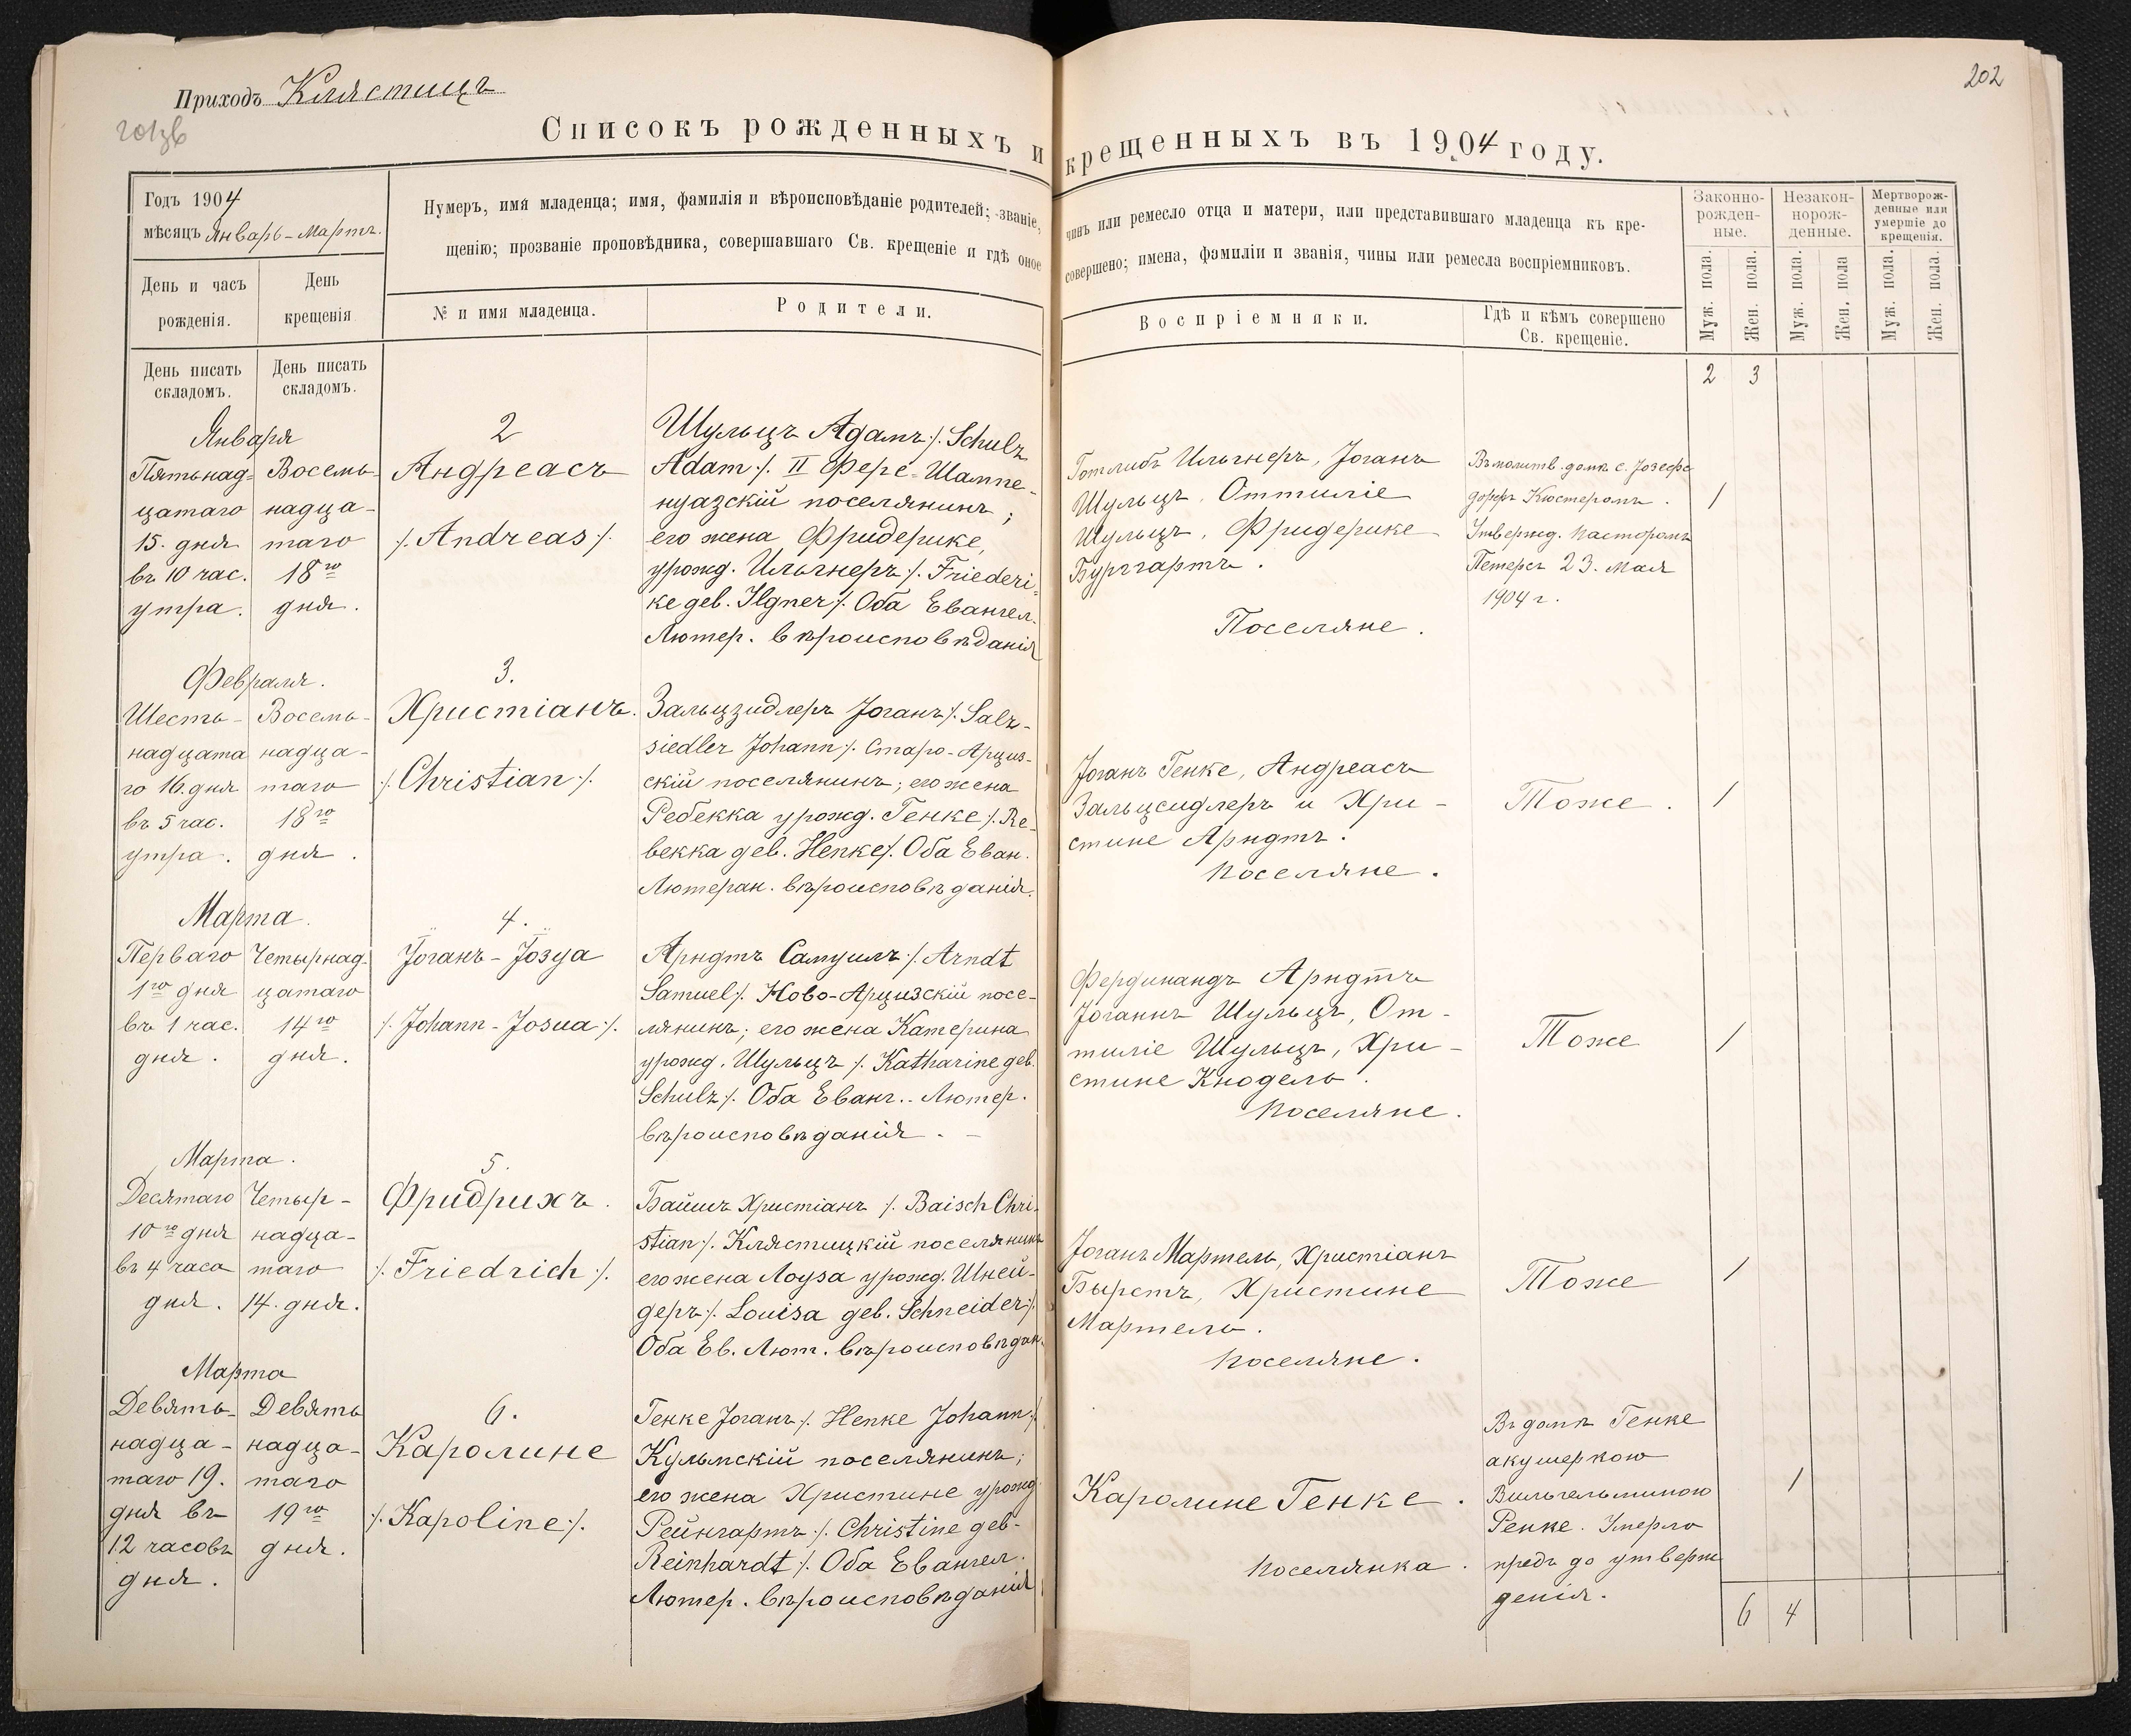 202
Приходъ Клястицъ
201зв
Списокъ рожденныхъ и крещенныхъ въ 1904 году.
Годъ 1904
мѣсяцъ Январь-Мартъ.
Нумеръ, имя младенца; имя, фамилія и вѣроисповѣданіе родителей; званіе, чинъ или ремесло отца и матери, или представившаго младенца къ кре-
щенію; прозваніе проповѣдника, совершавшаго Св. крещеніе и гдѣ оное совершено; имена, фэмиліи и званія, чины или ремесла воспріемниковъ.
Законно-
рожден-
ные.
Незакон-
норож-
денные.
Мертворож-
денные или
умершіе до
крещенія.
День и часъ
рожденія.
День
крещенія
№ и имя младенца.
Родители.
Воспріемники.
Гдѣ и кѣмъ совершено
Св. крещеніе.
Муж. пола.
Жен. пола.
Муж. пола.
Жен. пола
Муж. пола.
Жен. пола.
День писать
складомъ.
День писать
складомъ.
2 3
Января
Пятьнад-
цатаго
15. дня
въ 10 час.
утра.
Восемь-
надца-
таго
18го
дня.
2
Андреасъ
/. Andreas /.
Шульцъ Адамъ /. Schulz
Adam /. II Фере-Шампе-
нуазскій поселянинъ;
его жена Фридерике,
урожд. Ильгнеръ /. Friederi-
ke geb. Ilgner /. Оба Евангел.
Лютер. вѣроисповѣданія
Готлибъ Ильгнеръ, Іоганъ
Шульцъ, Оттиліе
Шульцъ, Фридерике
Бурггартъ.
Поселяне.
Въ молитв. домѣ с. Іозефс
дорфъ Кюстеромъ.
Утвержд. Пасторомъ
Петерсъ 23. Мая
1904 г.
1
Февраля.
Шесть-
надцата
го 16. дня
въ 5 час.
утра.
Восемь-
надца-
таго
18го
дня.
3.
Христіанъ.
/. Christian /.
Зальцзидлеръ Іоганъ /. Salz-
siedler Johann /. Старо-Арциз-
скій поселянинъ; его жена
Ребекка урожд. Генке /. Re-
бекка geb. Henke /. Оба Еван.
Лютеран. вѣроисповѣданія.
Іоганъ Генке, Андреасъ
Зальцсидлеръ и Хри-
стине Арндтъ.
Поселяне.
Тоже.
1
Марта.
Перваго
1го дня
въ 1 час.
дня.
Четырнад-
цатаго
14го
дня.
4.
Іоганъ-Іозуа
/. Johann-Josua /.
Арндтъ Самуилъ /. Arndt
Samuel /. Ново-Арцизскій посе-
лянинъ; его жена Катерина
урожд. Шульцъ /. Katharine geb.
Schulz /. Оба Еванг.. Лютер.
вѣроисповѣданія. -
Фердинандъ Арндтъ
Іоганнъ Шульцъ, От-
тиліе Шульцъ, Хри-
стине Кнодель.
Поселяне.
Тоже
1
Марта.
Десятаго
10го дня
въ 4 часа
дня.
Четыр-
надца-
таго
14. дня.
5.
Фридрихъ.
/. Friedrich /.
Байшъ Христіанъ /. Baisch Chri-
stian /. Клястицкій поселянинъ
его жена Лоуза урожд. Шней-
деръ /. Louisa geb. Schneider /.
Оба Ев. Лют. вѣроисповѣдан.
Іоганъ Мартель, Христіанъ
Бырстъ, Христине
Мартель.
Поселяне.
Тоже
1
Марта
Девять-
надца-
таго 19.
дня въ
12 часовъ
дня.
Девять
надца-
таго
19го
дня.
6.
Каролине
/. Kapoline /.
Генке Іоганъ /. Henke Johann /.
Кульмскій поселянинъ;
его жена Христине урожд.
Рейнгартъ /. Christine geb-
Reinhardt /. Оба Евангел.
Лютер. вѣроисповѣданія
Каролине Генке.
Поселянка.
Въ домѣ Генке
акушеркою
Вильгельминою
Ренке. Умерло
предъ до утверж
денія.
1
6 4